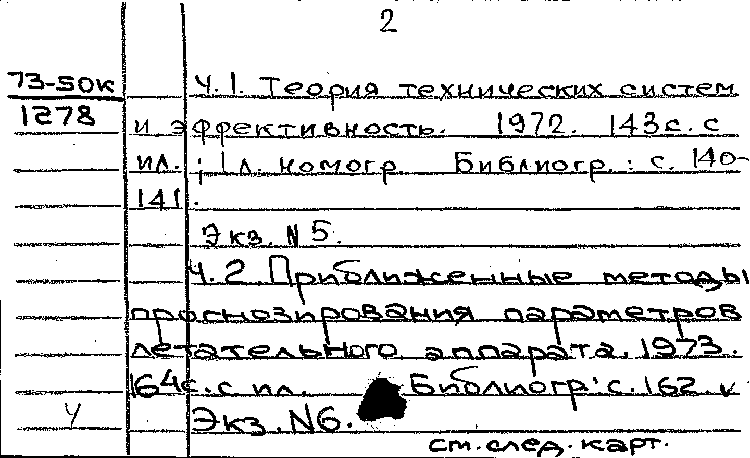 2
73-50к
1278
Ч.1. Теория технических систем
и эффективность. 1972. 143с. с
ил.; 1л. номогр. Библиогр.: с. 140-
141.
Экз. N 5.
Ч.2. Приближенные методы
прогнозирования параметров
летательного аппарата. 1973.
164с. с ил. Библиогр: с. 162.
Экз. N6.
У
см. след. карт.